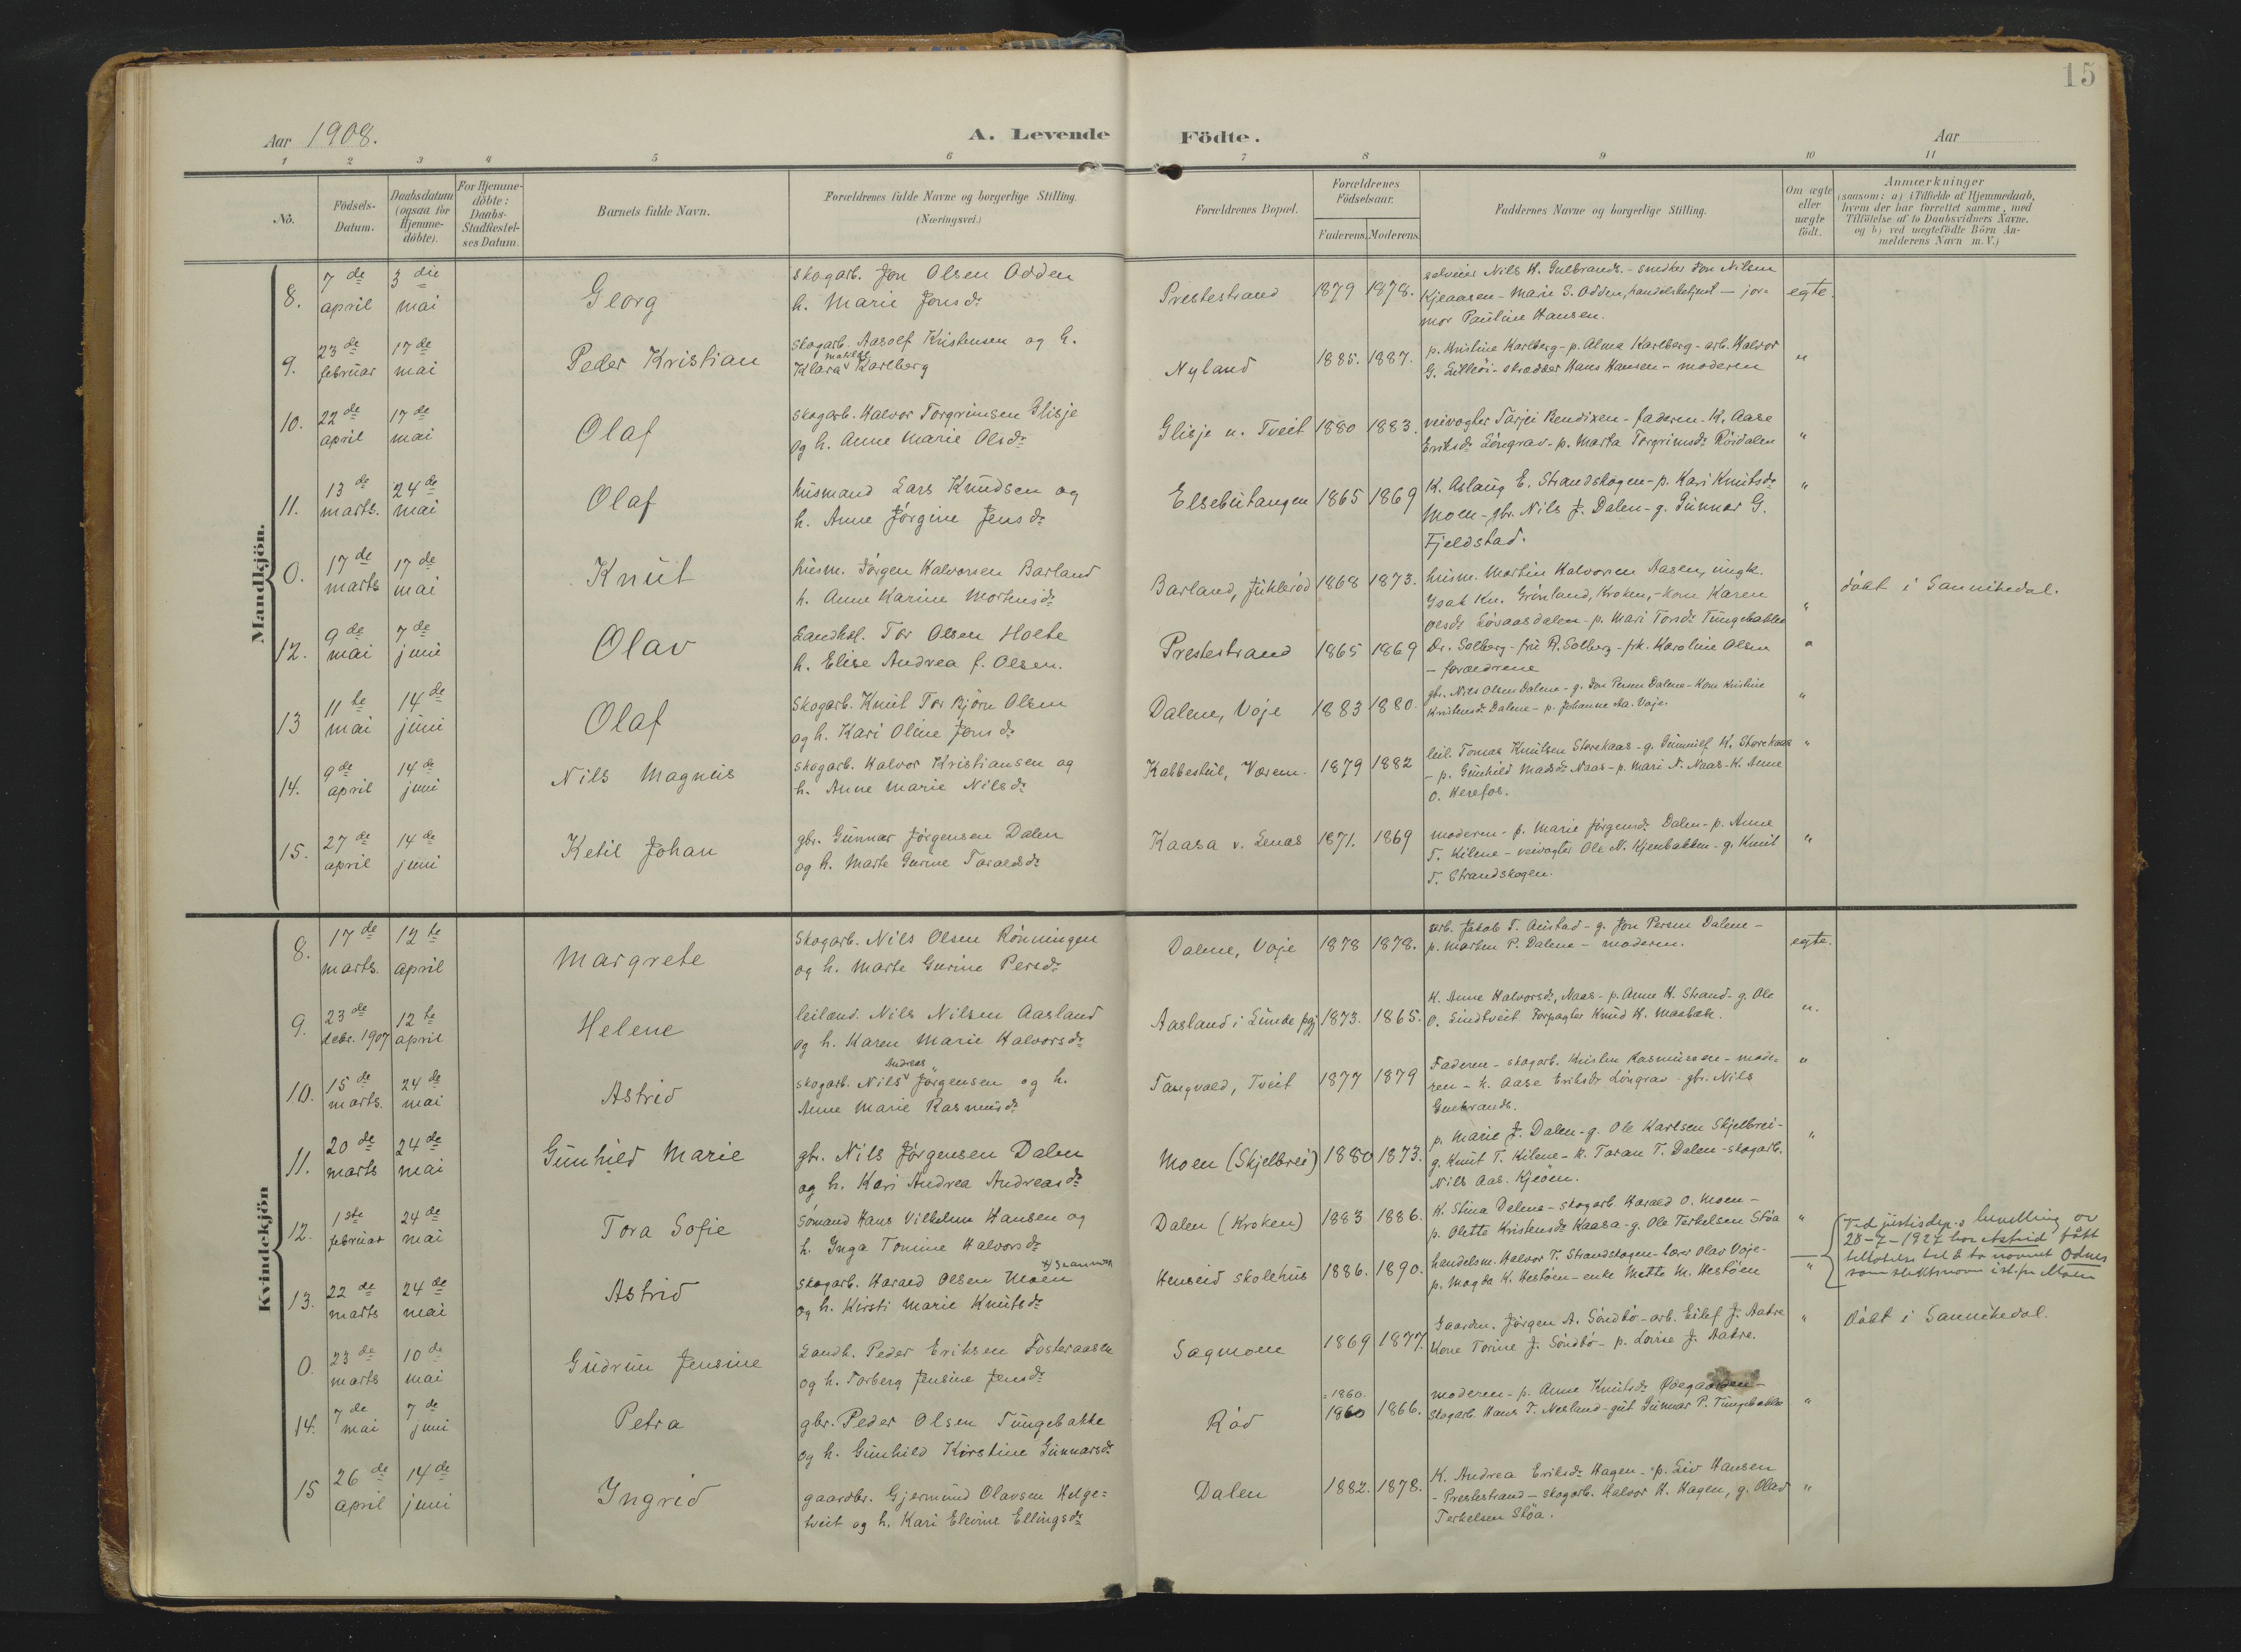 15
Aar 1908.
A. Levende Födte.
Aar
1 2 3 4 5 6 7 8 9 10 11
No.
Födsels-Datum.
Daabsdatum (ogsaa for Hjemme-döbte).
For Hjemme-döbte: Daabs-Stadfæstel-ses Datum.
Barnets fulde Navn.
Forældrenes fulde Navne og borgerlige Stilling. (Næringsvei.)
Forældrenes Bopæl.
Forældrenes Födselsaar.
Faderens. Moderens.
Faddernes Navne og borgerlige Stilling.
Om ægte eller uægte födt.
Anmærkninger
(saasom: a) i Tilfælde af Hjemmedaab, hvem der har forrettet samme, med Tilföielse af to Daabsvidners Navne, og b) ved uægtefödte Börn An-melderens Navn m. V.)
Mandkjön.
8. 7de april 3die mai Georg skogarb. Jon Olsen Odden
h. Marie Jonsdr Prestestrand 1879 1878. Nils H. Gulbrands. - smedker Jon Nilsen
Kjeaasen - Marie S. Odden, handelsbetjent - jor=
mor Pauline Hansen. egte.
9. 23de februar 17de mai Peder Kristian skogarb. Aasolf Kristensen og h.
Klara Matilde Karlberg Nyland 1885. 1887. p. Kristine Karlberg - p. Alma Karlberg - arb. Halvor
G. Lilleöi - skrædder Hans Hansen - moderen "
10. 22de april 17de mai Olaf skogarb. Halvor Torgrimsen Glisje
og h. Anne Marie Olsdr Glisje u. Tveit 1880 1883. veivogter Tarjei Bendixen - faderen - K. Aase
Eriksdr Löngrav - p. Marta Torgrimsdr Röidalen "
11. 13de marts. 24de mai Olaf husmand Lars Knudsen og
h. Anne Jörgine Jensdr Elsebutangen 1865 1869 K. Aslaug E. Strandskogen - p. Kari Knutsdr
Moen - gbr. Nils J. Dalen - g. Gunnar G.
Fjeldstad. "
0. 17de marts 17de mai Knut husm. Jörgen Halvorsen Barland
h. Anne Karine Mortensdr Barland, Juklerød 1868 1873. husm. Martin Halvorsen Aasen, ungk.
Isak Kn. Grönland, Kroken, - kone Karen
Olsdr Lövaasdalen - p. Mari Torsdr Tungebakken " döbt i Sannikedal.
12. 9de mai 7de juni Olav Landhdl. Tor Olsen Holte
h. Elise Andrea f. Olsen. Prestestrand 1865 1869 Dr. Solberg - fru R. Solberg - frk. Karoline Olsen
- forældrene "
13 11te mai 14de juni Olaf Skogarb. Knut Torbjörn Olsen
og h. Kari Oline Jonsdr Dalene, Voje 1883 1880. gbr. Nils Olsen Dalene - g. Jon Persen Dalene - Kone Kristine
Kristensdr Dalene - p. Johanne Aa. Voje. "
14. 9de april 14de juni Nils Magnus skogarb. Halvor Kristiansen og
h. Anne Marie Nilsdr Kabbestul, Værem. 1879 1882 leil. Tomas Knutsen Storekaas - g. Gunnulf K. Storekaas
- p. Gunhild Madsdr Naas - p. Mari N. Naas - K. Anne
O. Herefos. "
15. 27de april 14de juni Ketil Johan gbr. Gunnar Jörgensen Dalen
og h. Marte Gurine Taraldsdr Kaasa v. Lenas 1871. 1869 moderen - p. Marie Jörgensdr Dalen - p. Anne
T. Kilene - veivogter Ole N. Kjenbakken - g. Knut
T. Strandskogen. "
Kvindekjön
8. 17de marts. 12te april Margrete Skogarb. Nils Olsen Rönningen
og h. Marte Gurine Persdr Dalene, Voje 1878 1878. arb. Jakob T. Austad - g. Jon Persen Dalene -
p. Marten P. Dalene - moderen. egte.
9. 23de debr. 1907 12te april Helene leilænd. Nils Nilsen Aasland
og h. Karen Marie Halvorsdr Aasland i Lunde pgj 1873. 1865. K. Anne Halvorsdr, Naas - p. Anne H. Strand - g. Ole
O. Lindtveit. Forpagter Knud H. Maabæk. "
10. 15de marts. 24de mai Astrid skogarb. Nils Andreas Jörgensen og h.
Anne Marie Rasmusdr Tangvald, Tveit 1877 1879 Faderen - skogarb. Kristen Rasmussen - mode=
ren - k. Aase Eriksdr Löngrav - gbr. Nils
Gulbrands. "
11. 20de marts 24de mai Gunhild Marie gbr. Nils Jörgensen Dalen
og h. Kari Andrea Andreasdr Moen (Skjelbrei) 1880 1873. p. Marie J. Dalen - g. Ole Karlsen Skjelbrei -
g. Knut T. Kilene - k. Taran T. Dalen - skogarb.
Nils Aas. Kjeöen. "
12. 1ste februar 24de mai Tora Sofie Sömand Hans Vilhelm Hansen og
h. Inga Tomine Halvorsdr Dalen (Kroken) 1883 1886. K. Stina Dalene - skogarb. Harald O. Moen -
p. Olette Kristensdr Kaasa - g. Ole Terkelsen Slöa "
13. 22de marts 24de mai Astrid skogarb. Harald Olsen Moen
og h. Kirsti Marie Knutsdr Henseid skolehus 1886. 1890. handelsm. Halvor T. Strandskogen - lærer Olav Voje -
p. Magda K. Hestöen - enke Mette M. Hestöen " Ved justisdep.s bevilling av
28-7-1927 har Astrid fått
tillatelse til å ta navnet Odnes
som slektsnavn ist. for Moen
0. 23de marts 10de mai Gudrun Jensine Landh. Peder Eriksen Fosteraasen
og h. Torberg Jensine Jensdr Sagmoen 1869 1877. Gaardm. Jörgen A. Söndbö - arb. Eilef J. Aatre
Kone Torine J. Söndbö - p. Lovise J. Aatre. " döbt i Sannikedal.
14. 7de mai 7de juni Petra gbr. Peder Olsen Tungebakke
og h. Gunhild Kirstine Gunnarsdr Röd 1860. 1860 1866. moderen - p. Anne Knutsdr Ödegaarden -
skogarb. Hans T. Nesland - gut Gunnar P. Tungebakke "
15 26de april 14de juni Yngrid gaardbr. Gjermund Olavsen Helge=
tveit og h. Kari Elevine Ellingsdr Dalen 1882. 1878. K. Andrea Eriksdr Hagen - p. Liv Hansen
- Prestestrand - skogarb. Halvor H. Hagen, g. Olav
Terkelsen Slöa. "